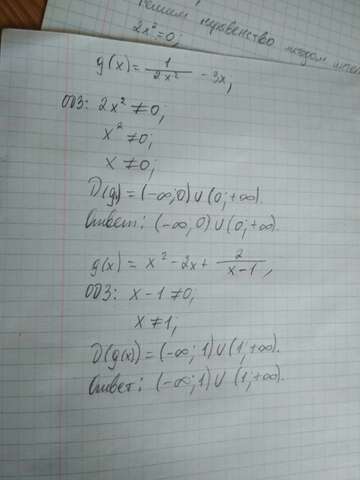 Решим неравенство методом
2x²=0;
g(x)=1/2x² - 3x,
ОДЗ: 2x² ≠ 0,
x² ≠ 0;
x ≠ 0;
D(g)=(-∞;0)∪(0;+∞).
Ответ: (-∞;0)∪(0;+∞).
g(x)= x² - 2x + 2/x-1,
ОДЗ: x - 1 ≠ 0,
x ≠ 1;
D(g(x))=(-∞;1)∪(1;+∞).
Ответ: (-∞;1)∪(1;+∞).